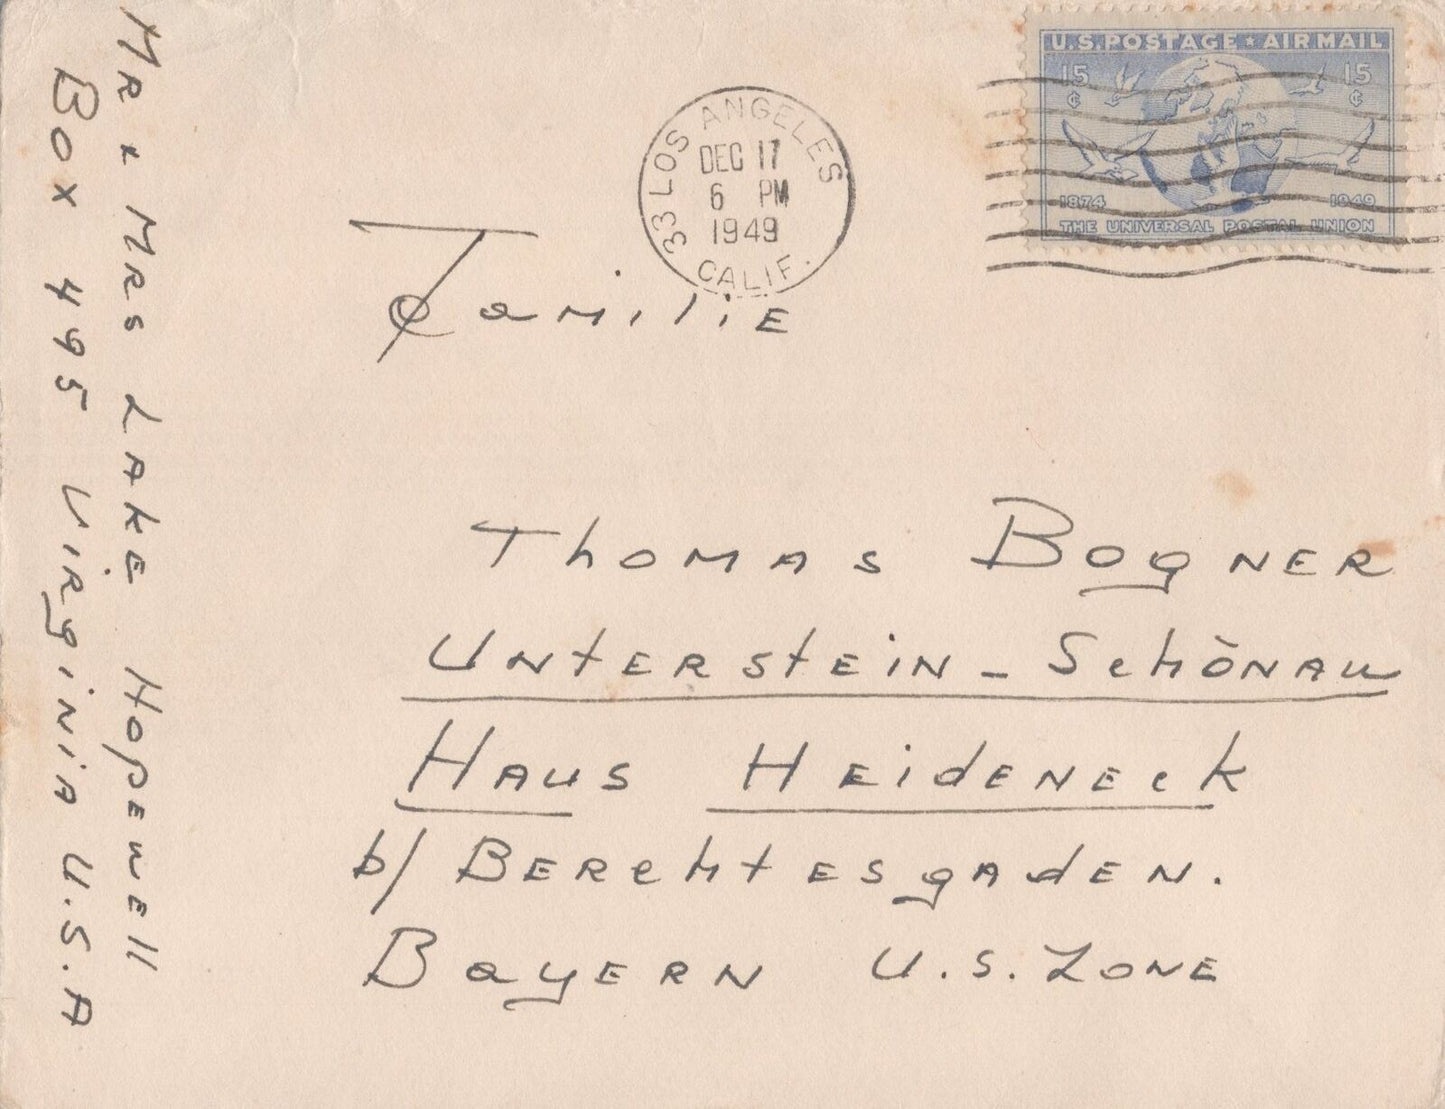 Mr & Mrs Lake Hopewell
Box 495 Virginia U.S.A
33 LOS ANGELES
DEC 17
6 PM
1949
CALIF.
U.S. POSTAGE ★ AIR MAIL
15¢ 15¢
1874 1949
THE UNIVERSAL POSTAL UNION
Familie
Thomas Bogner
Unterstein - Schönau
Haus Heideneck
b/ Berchtesgaden.
Bayern U.S. Zone